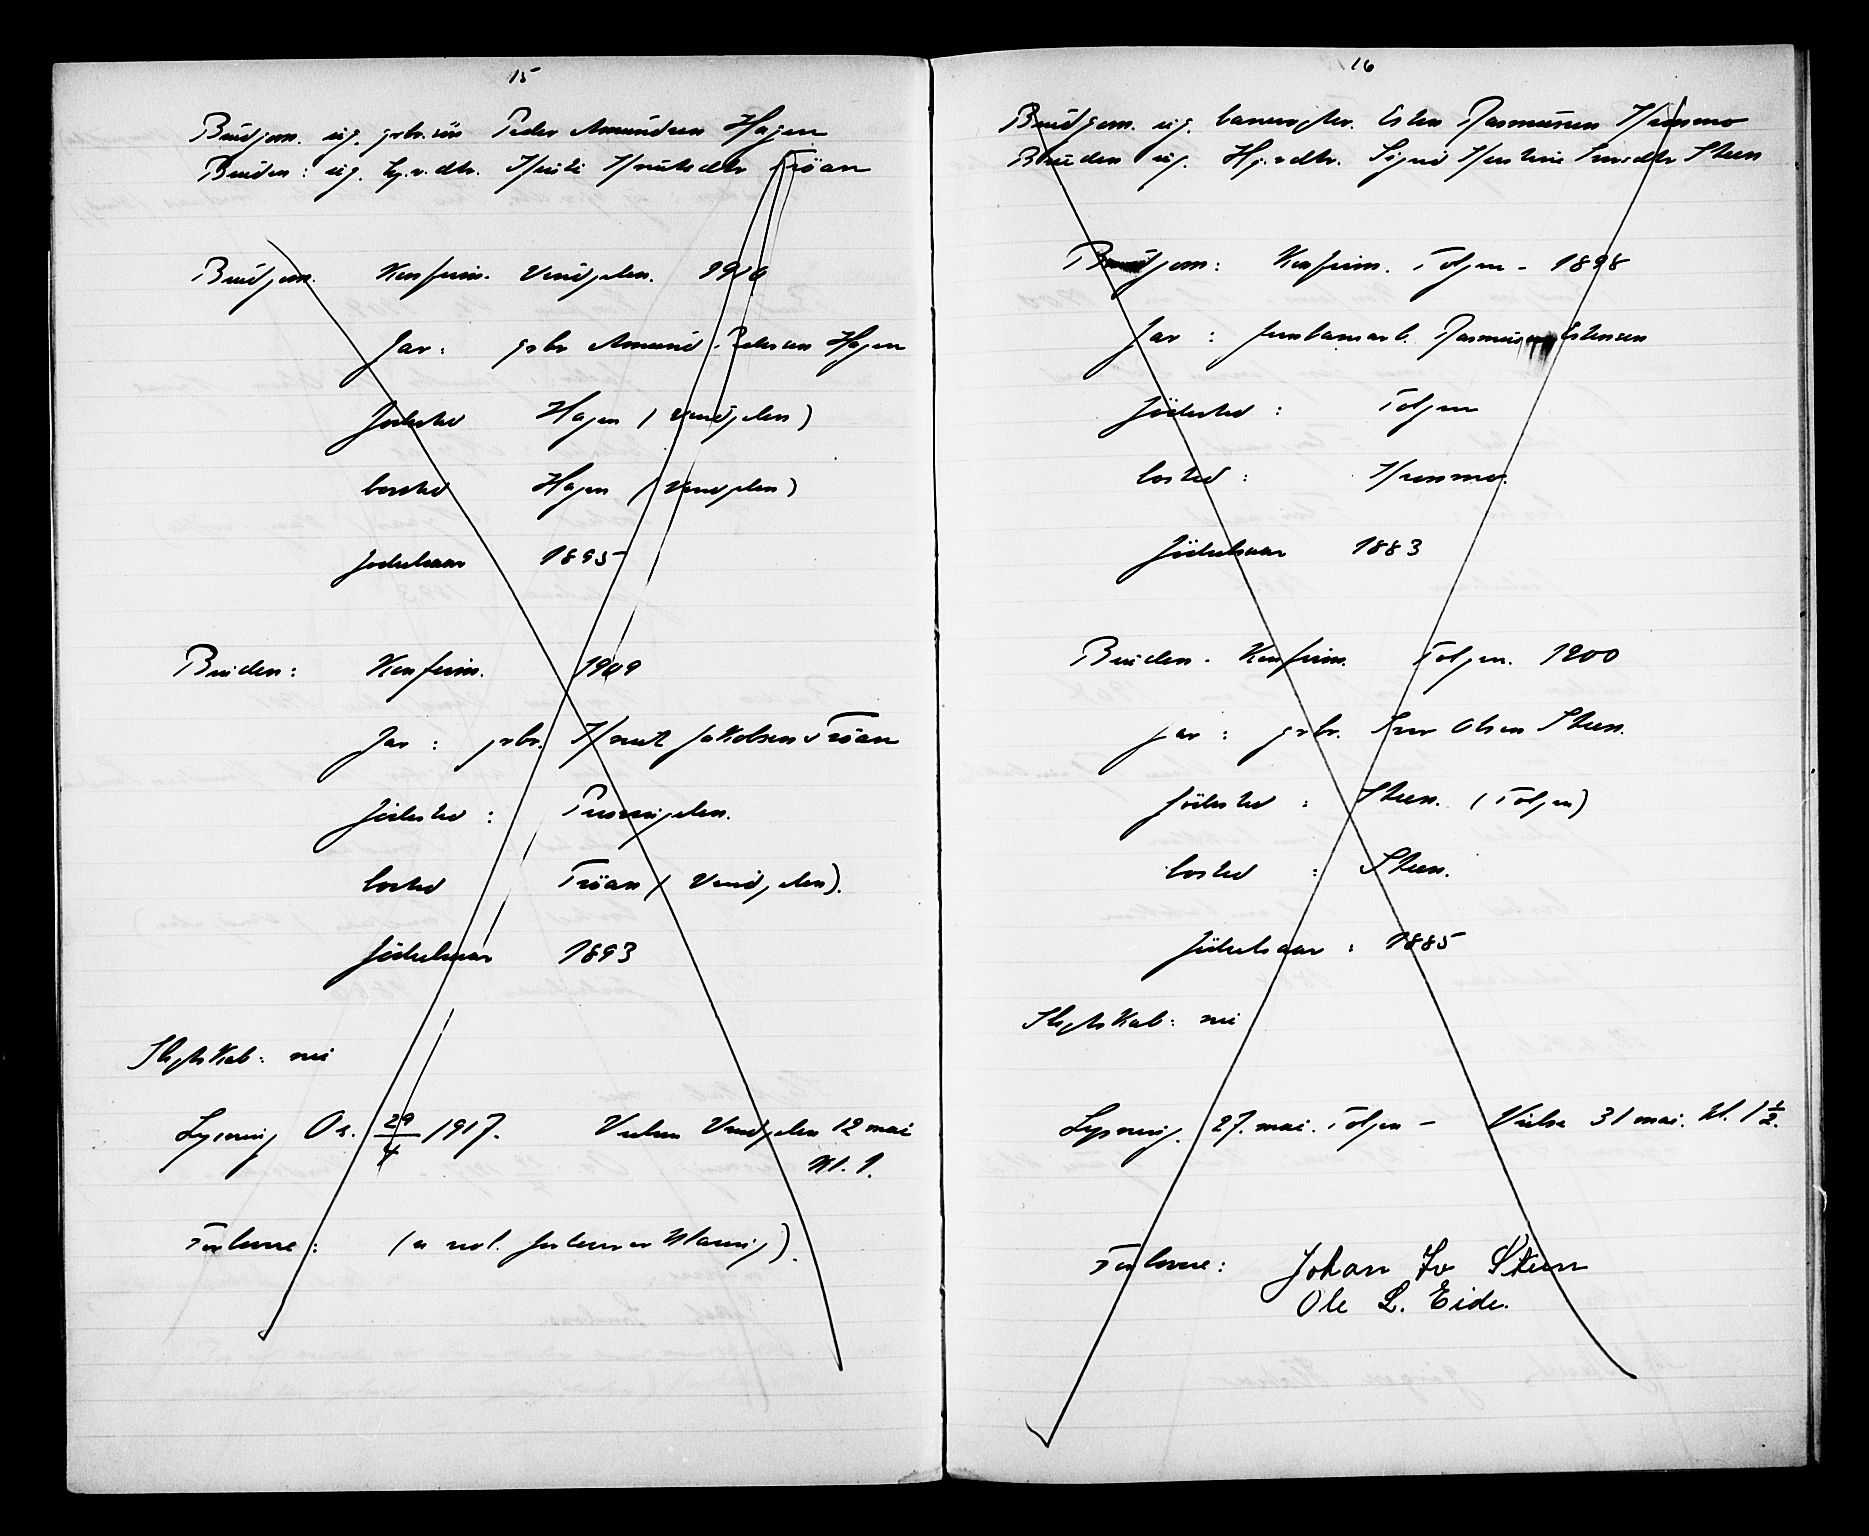 15
Brudgom. ug. grbr. søn Peder Amundsen Hagen
Bruden: ug. hj.v. dtr. Knutsdtr Trøan
Brudgom. Konfirm. Vingelen. 1910
Far: grbr Amund Pedersen Hagen
Fødested Hagen (Vingelen)
bosted Hagen (Vingelen)
Fødselsaar 1895
Bruden: Konfirm. 1909
Far: grbr. Knut Jakobsen Trøan
Fødested:
bosted Trøan (Vingelen).
Fødselsaar 1893
Slegtskab: nei
Lysning Os. 29/4 1917. Vielsen Vingelen 12 mai
Kl. 1.
Forlovere: (se vedl. forlovererklæring).
16
Brudgom. ug. banevogter. Esten Rasmusen
Bruden ug. Hj.v. dtr. Sigrid Iversdtr Steen
Brudgom: Konfirm. Tolgen - 1898
Far: jernbanearb. Rasmus Estensen
Fødested: Tolgen
bosted:
Fødselsaar 1883
Bruden. Konfirm. Tolgen. 1900
Far: grbr. Iver Olsen Steen.
Fødested: Steen. (Tolgen)
bosted: Steen.
Fødselsaar: 1885
Slegtskab: nei
Lysning. 27. mai. Tolgen - Vielse 31 mai. kl. 1 1/2.
Forlovere: Johan Iv Steen
Ole L. Eide.